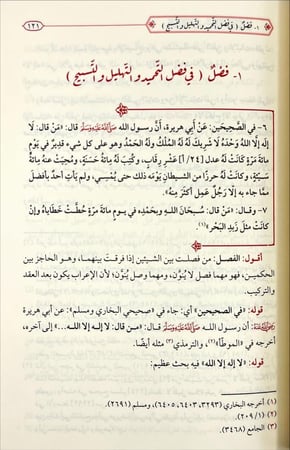 ١- فَصْلٌ ( فِي فَضْلِ التَّحْمِيدِ وَالتَّهْلِيلِ وَالتَّسْبِيحِ )
١٢١
١- فَصْلٌ ( فِي فَضْلِ التَّحْمِيدِ وَالتَّهْلِيلِ وَالتَّسْبِيحِ )
٦- في الصَّحِيحَينِ: عَنْ أَبِي هريرة، أَنَّ رسول الله ﷺ قال: «مَنْ قَالَ: لَا
إِلَهَ إِلَّا اللهُ وَحْدَهُ لَا شَرِيكَ لَهُ لَهُ المُلْكُ وَلَهُ الحَمْدُ وهو على كل شيء قَدِيرٌ في يَوْمٍ
مائَةَ مَرَّةٍ كَانَتْ لَهُ عِدْلَ [٢٤/أ] عَشْرِ رِقَابٍ، وكُتِبَ لَهُ مِائَةُ حَسَنَةٍ، وَمُحِيَتْ عنه مِائَةُ
سَيِّئَةٍ، وَكَانَتْ لَهُ حِرْزًا من الشيطانِ يَوْمَه ذلك حتى يُمْسِيَ، ولم يَأتِ أحدٌ بأَفضلَ
ممَّا جاء به إلَّا رَجُلٌ عَمِلَ أكثرَ مِنْهُ».
٧- وقال: «مَنْ قَالَ: سُبحَانَ اللهِ وبِحَمْدِه في يومٍ مائةَ مَرَّةٍ حُطَّتْ خَطَايَاهُ وإِنْ
كَانَتْ مثلَ زَبَدِ البَحْرِ»(١).
أقول: الفصل: من فصلت بين الشيئين إذا فرقت بينهما، وهو الحاجز بين
الحكمين، فهو مهما فصل لا يُنوَّن، ومهما وصل يُنوَّن؛ لأن الإعراب يكون بعد العقد
والتركيب.
قوله: «في الصحيحين» أي: جاء في «صحيحي البخاري ومسلم»: عن أبي هريرة
رضي الله عنه: أن رسول الله ﷺ قال: «من قال: لا إله إلا الله...» إلى آخره،
أخرجه في «الموطأ»(٢)، والترمذي(٣) مثله أيضًا.
قوله: «لا إله إلا الله» فيه بحث عظيم:
(١) أخرجه البخاري (٣٢٩٣، ٦٤٠٣، ٦٤٠٥)، ومسلم (٢٦٩١).
(٢) (١/ ٢٠٩).
(٣) الجامع (٣٤٦٨).